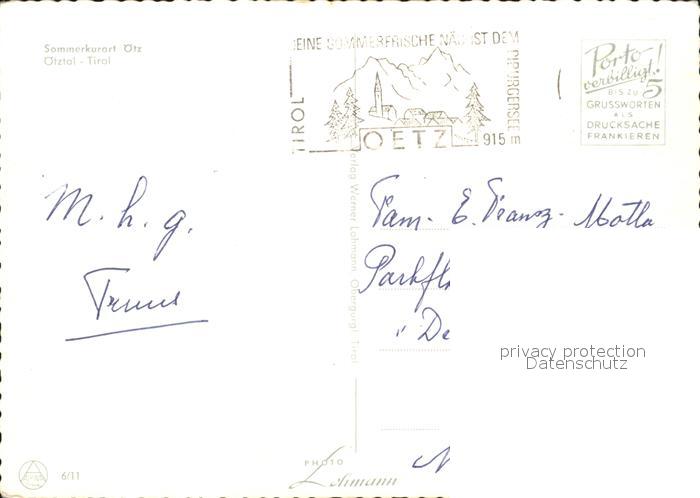 Sommerkurort Ötz
Ötztal - Tirol
EINE SOMMERFRISCHE NÄCHST DEM PIBURGERSEE
TIROL
OETZ
915 m
Porto
verbilligt!
BIS ZU 5
GRUSSWORTEN
ALS
DRUCKSACHE
FRANKIEREN
M. h. g.
Fam. E. Franz-
"De
Verlag Werner Lohmann Obergurgl Tirol
privacy protection
Datenschutz
PHOTO
Lohmann
6/11